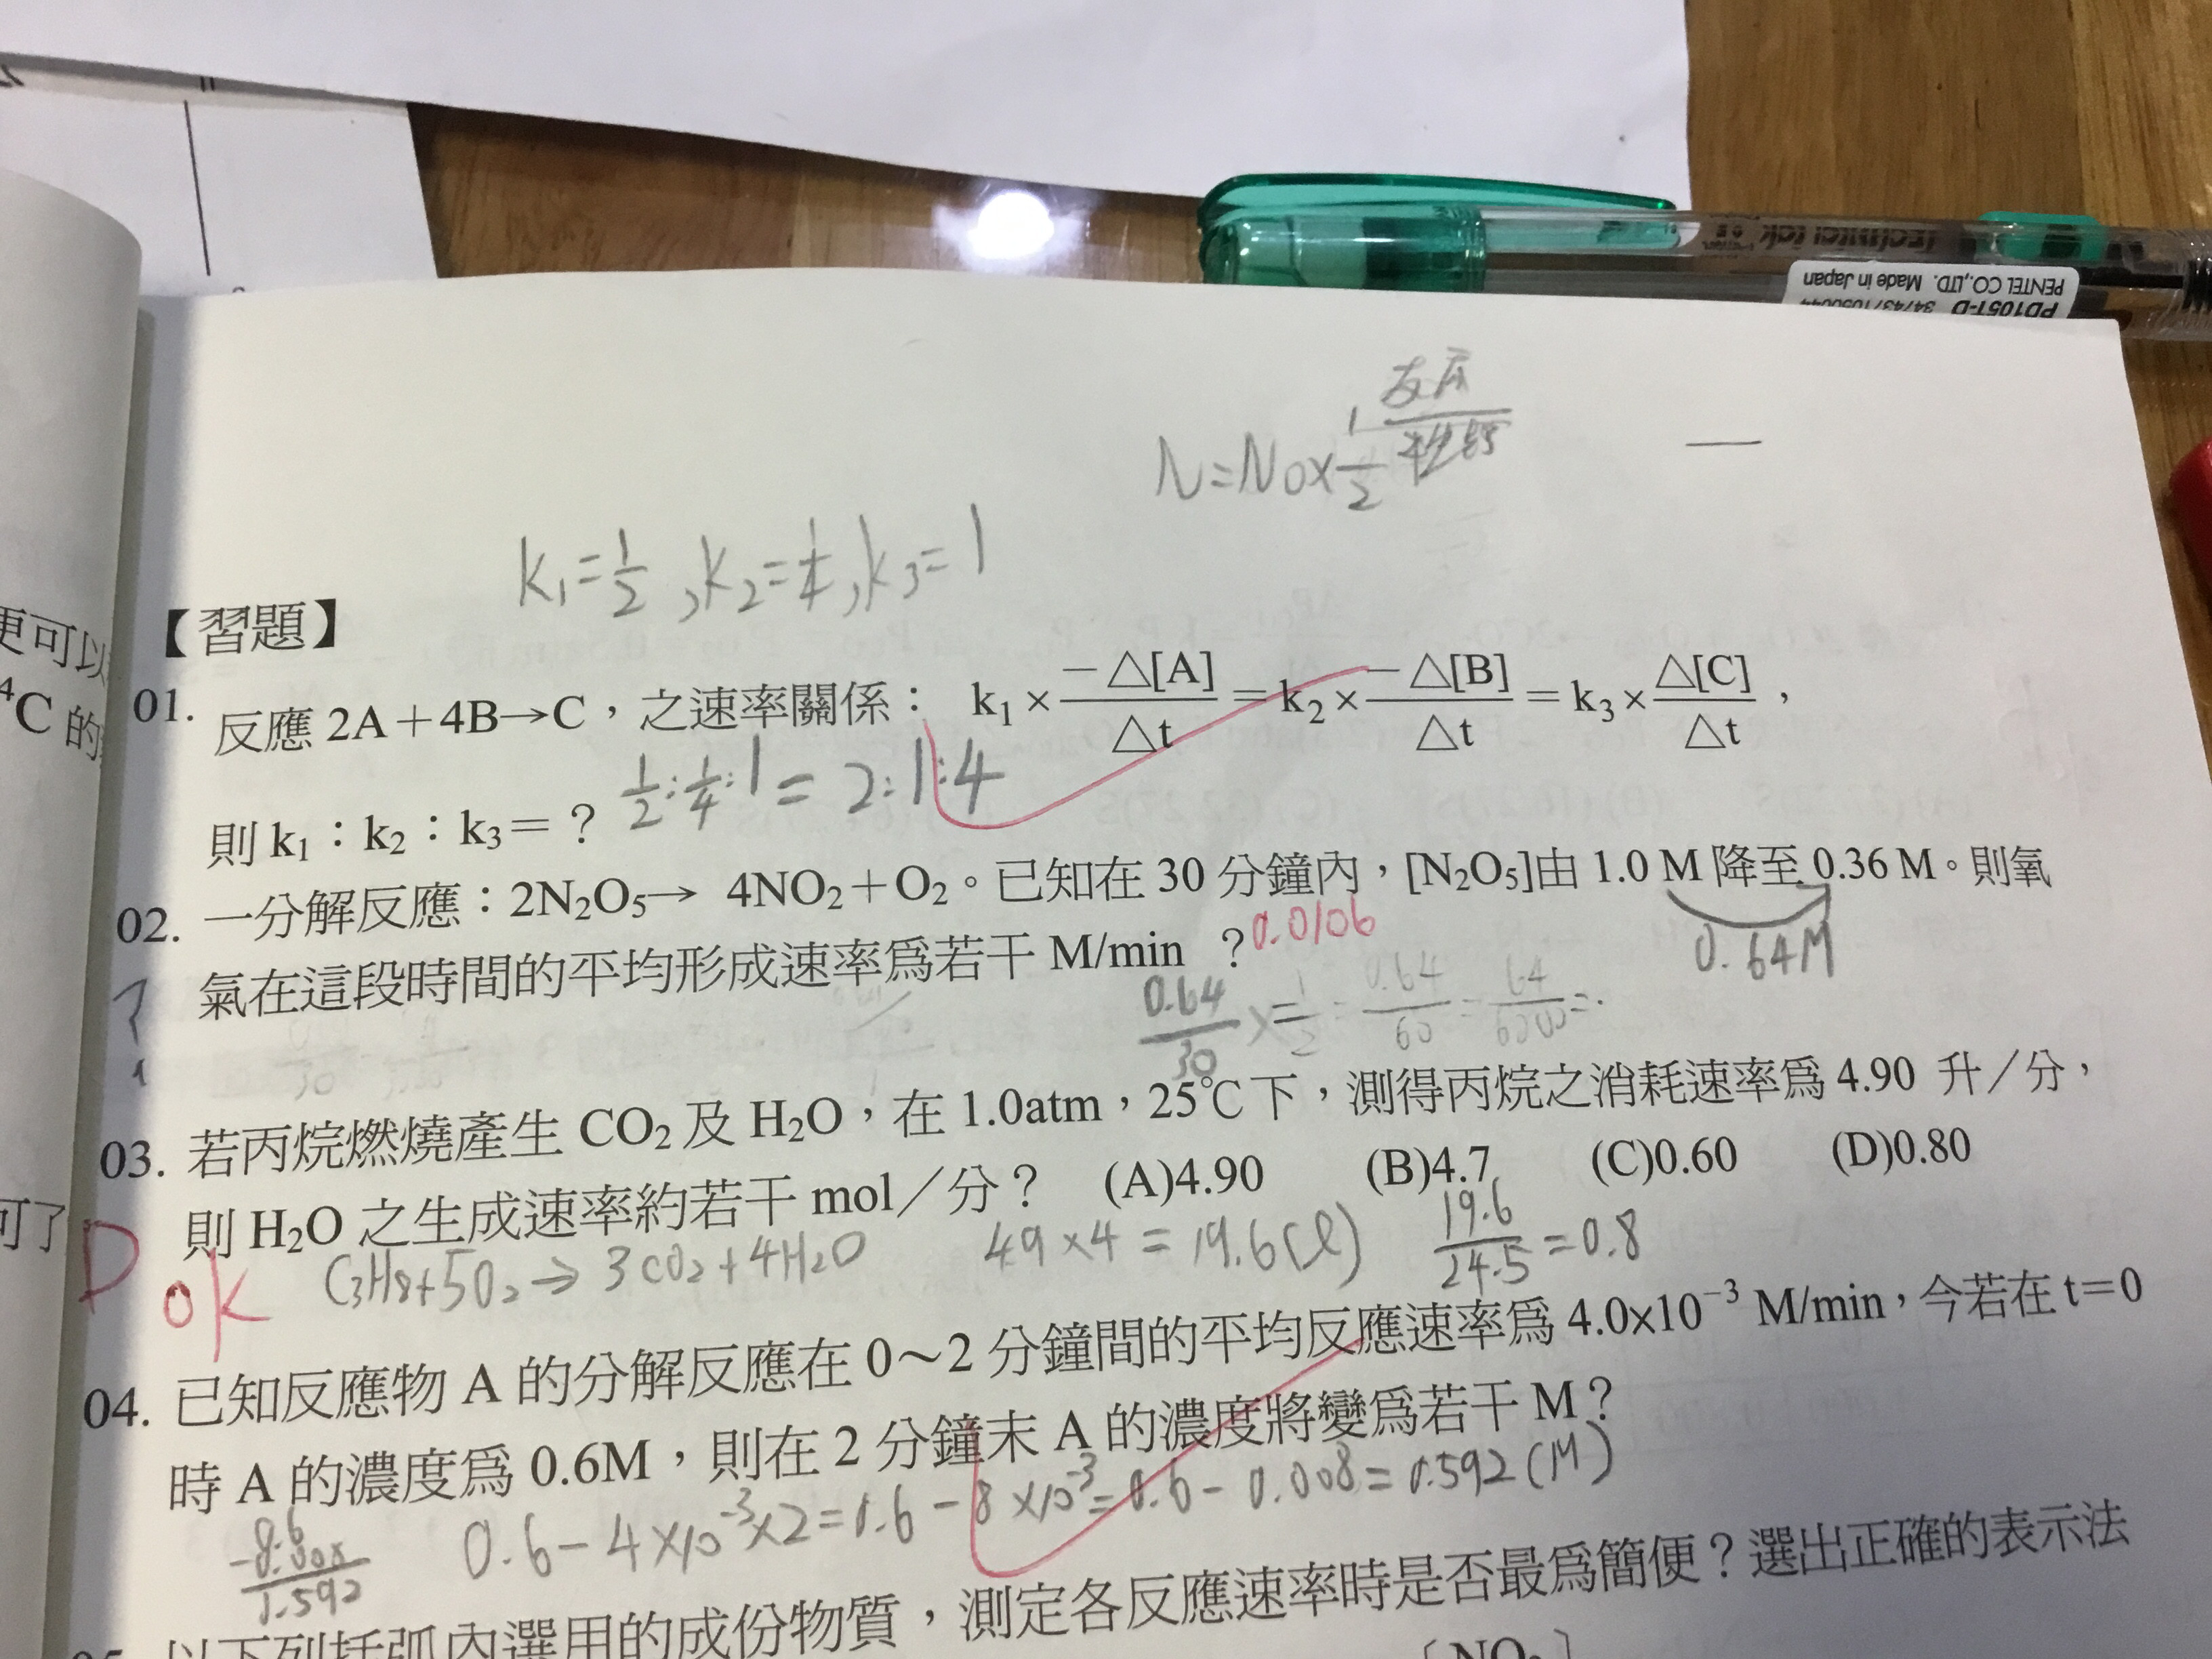 PENTEL CO.,LTD. Made in Japan
PD105T-D
N=N₀×1/2
k₁=1/2 , k₂=1/4 , k₃=1
更可以
⁴C 的
可了
【習題】
01. 反應 2A+4B→C，之速率關係： k₁×−△[A]/△t=k₂×−△[B]/△t=k₃×△[C]/△t，
則 k₁：k₂：k₃=？ 1/2:1/4:1=2:1:4
02. 一分解反應：2N₂O₅→ 4NO₂+O₂。已知在 30 分鐘內，[N₂O₅]由 1.0 M 降至 0.36 M。則氧
0.64M
氣在這段時間的平均形成速率爲若干 M/min ？ 0.0106
0.64/30×1/2=0.64/60=64/6000=
03. 若丙烷燃燒產生 CO₂ 及 H₂O，在 1.0atm，25℃下，測得丙烷之消耗速率爲 4.90 升／分，
則 H₂O 之生成速率約若干 mol／分？ (A)4.90 (B)4.7 (C)0.60 (D)0.80
D ok C₃H₈+5O₂→3CO₂+4H₂O 49×4=19.6(l) 19.6/24.5=0.8
04. 已知反應物 A 的分解反應在 0～2 分鐘間的平均反應速率爲 4.0×10⁻³ M/min，今若在 t=0
時 A 的濃度爲 0.6M，則在 2 分鐘末 A 的濃度將變爲若干 M？
0.6−4×10⁻³×2=0.6−8×10⁻³=0.6−0.008=0.592(M)
以下列括弧內選用的成份物質，測定各反應速率時是否最爲簡便？選出正確的表示法